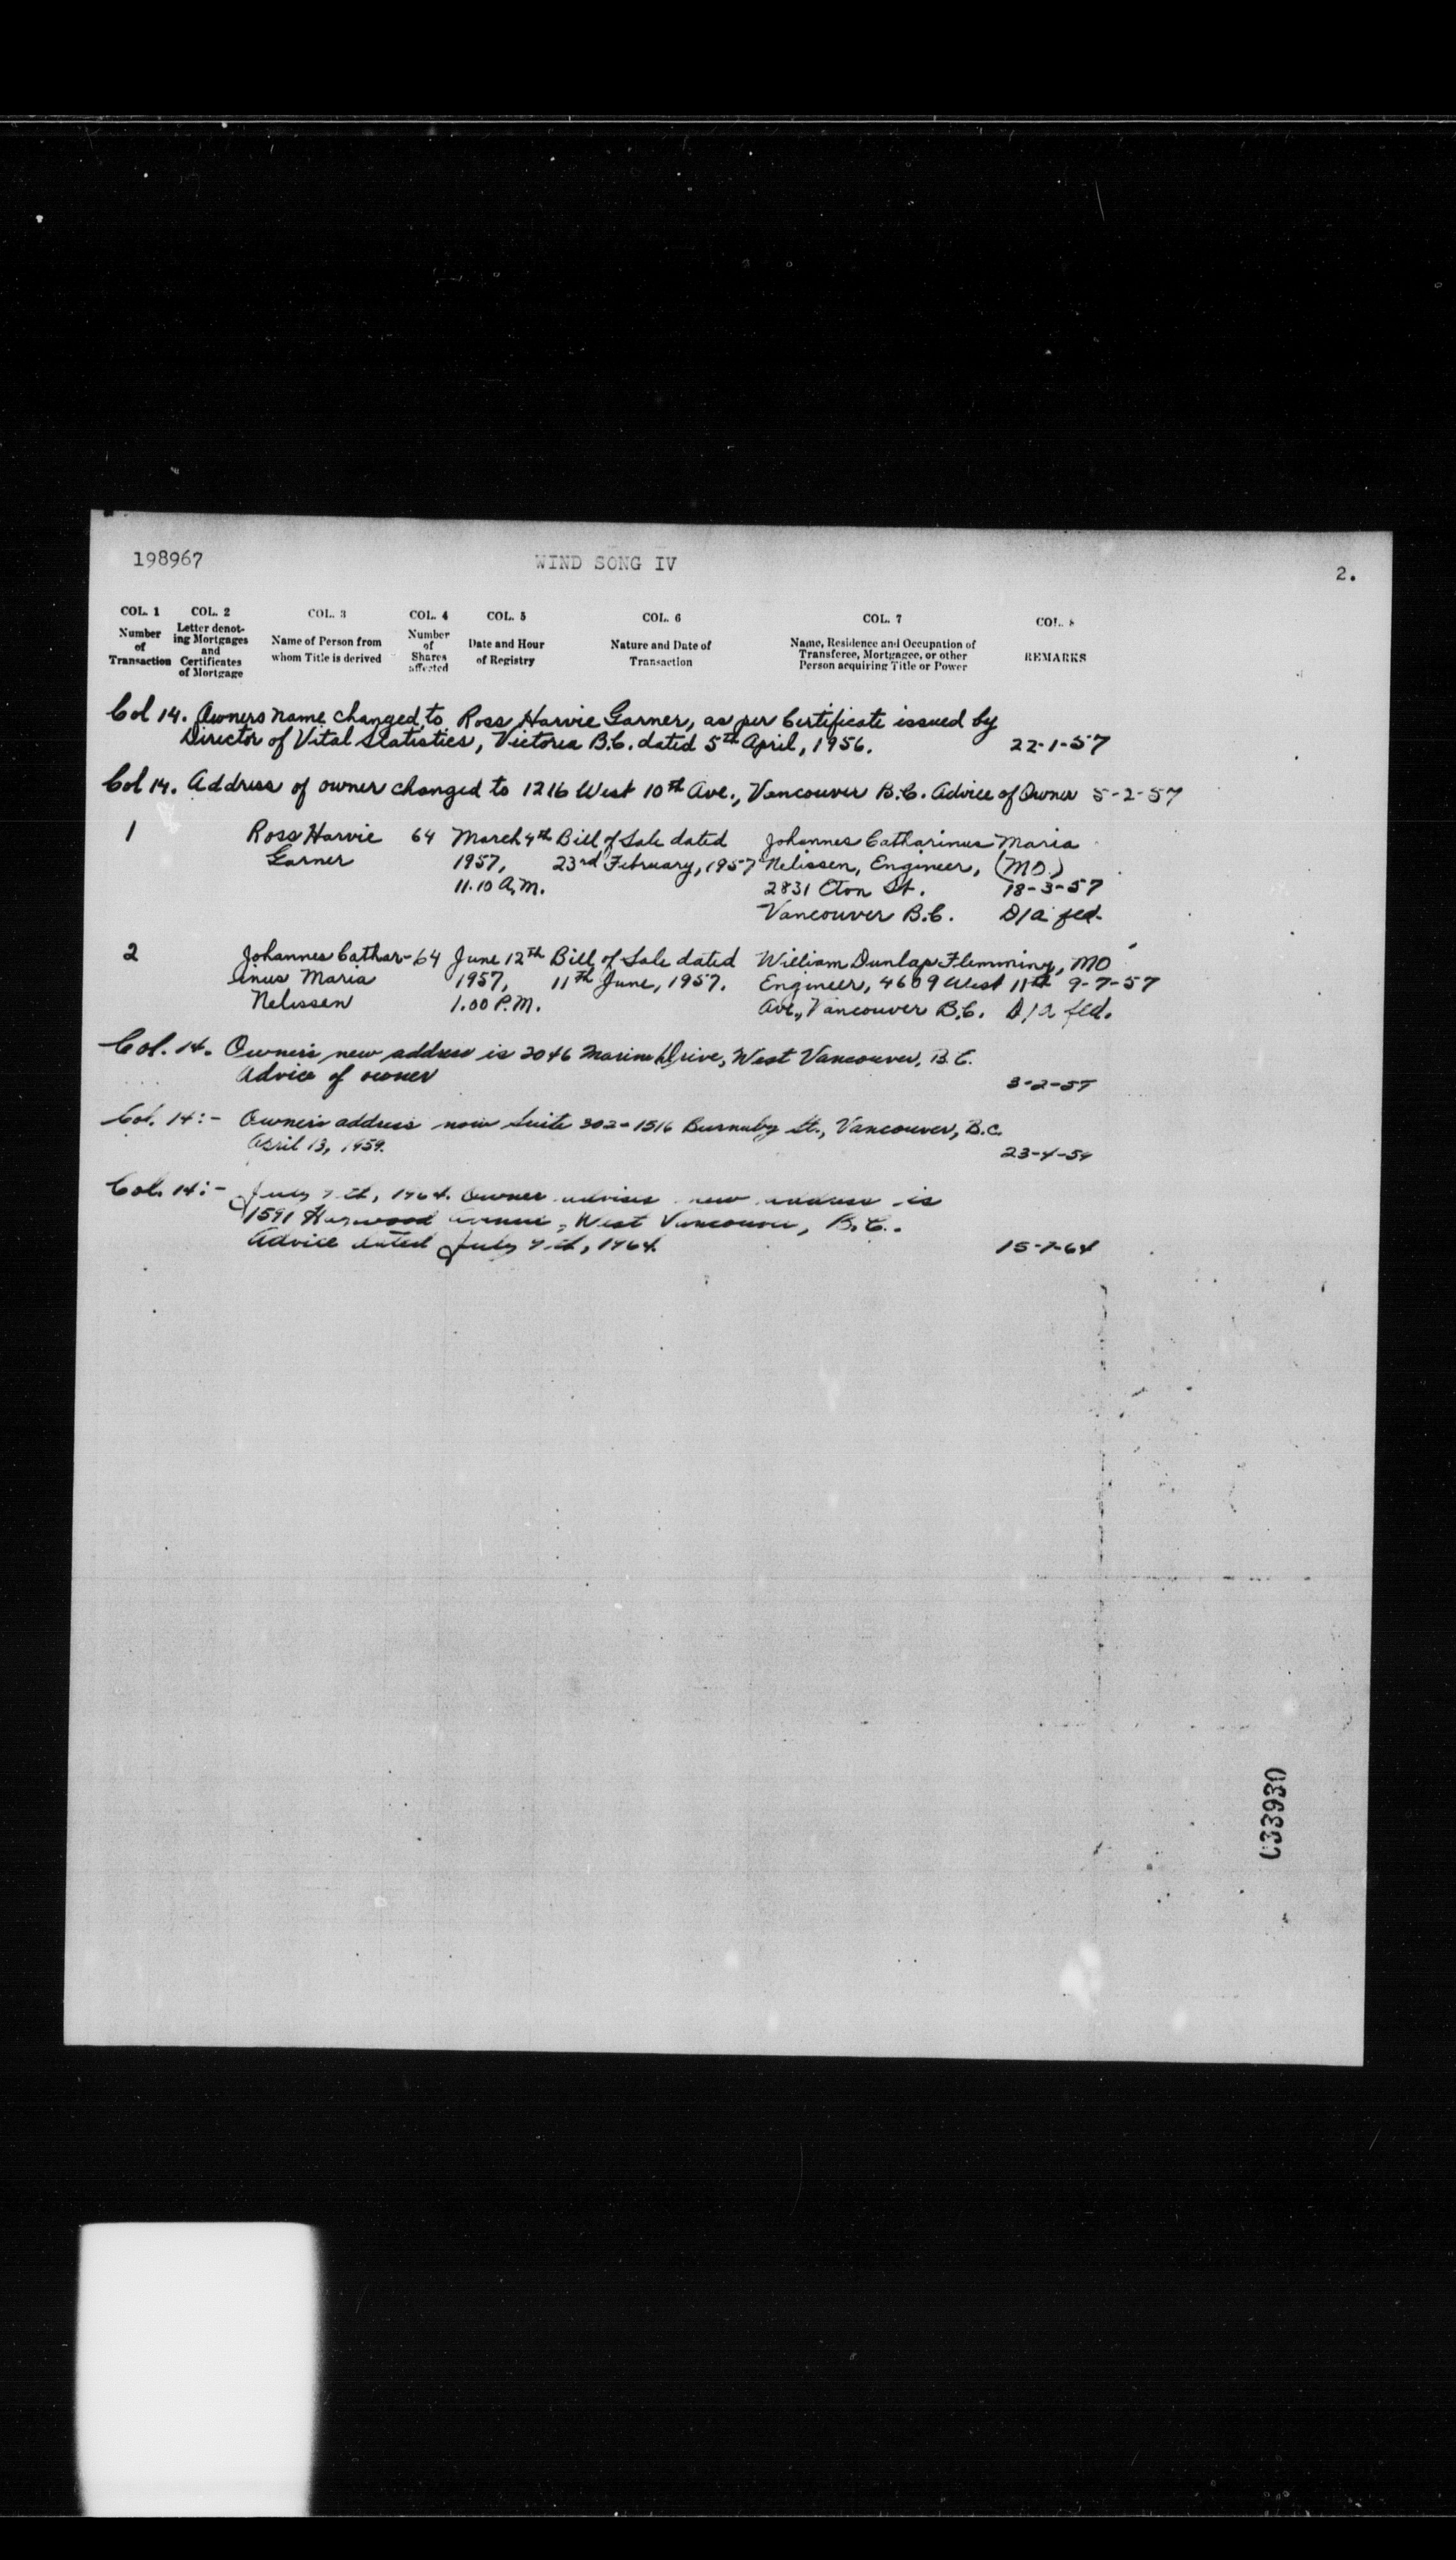 198967 WIND SONG IV 2.
COL. 1 COL. 2 COL. 3 COL. 4 COL. 5 COL. 6 COL. 7 COL. 8
Number of Transaction
Letter denoting Mortgages and Certificates of Mortgage
Name of Person from whom Title is derived
Number of Shares affected
Date and Hour of Registry
Nature and Date of Transaction
Name, Residence and Occupation of Transferee, Mortgagee, or other Person acquiring Title or Power
REMARKS
Col 14. Owners name changed to Ross Harvie Garner, as per Certificate issued by
Director of Vital Statistics, Victoria B.C. dated 5th April, 1956. 22-1-57
Col 14. Address of owner changed to 1216 West 10th Ave., Vancouver B.C. Advice of Owner 5-2-57
1 Ross Harvie 64 March 4th Bill of Sale dated Johannes Catharinus Maria
Garner 1957, 23rd February, 1957 Nelissen, Engineer, (MO.)
11.10 A.M. 2831 Eton St. 18-3-57
Vancouver B.C. D/a fed.
2 Johannes Cathar- 64 June 12th Bill of Sale dated William Dunlap Flemming, MO
inus Maria 1957, 11th June, 1957. Engineer, 4609 West 11th 9-7-57
Nelissen 1.00 P.M. Ave., Vancouver B.C. D/a fed.
Col. 14. Owner's new address is 2046 Marine Drive, West Vancouver, B.C.
Advice of owner 3-2-58
Col. 14:- Owner's address now Suite 302-1516 Burnaby St., Vancouver, B.C.
April 13, 1959. 23-4-59
Col. 14:- July 7th, 1964. Owner advises new address is
1591 Haywood Avenue, West Vancouver, B.C..
Advice dated July 7th, 1964. 15-7-64
C33930